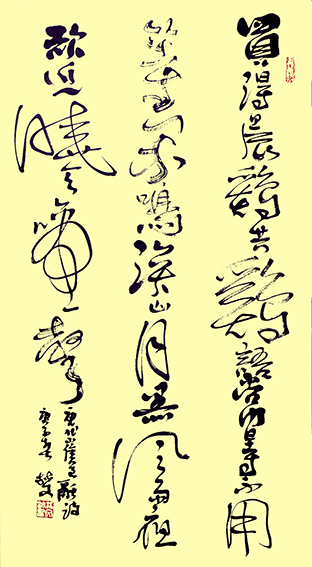 買得晨鷄共鷄語常時不用
等閒鳴深山月黑風雨夜
欲近曉天啼一聲
唐代崔道融詩
庚子春